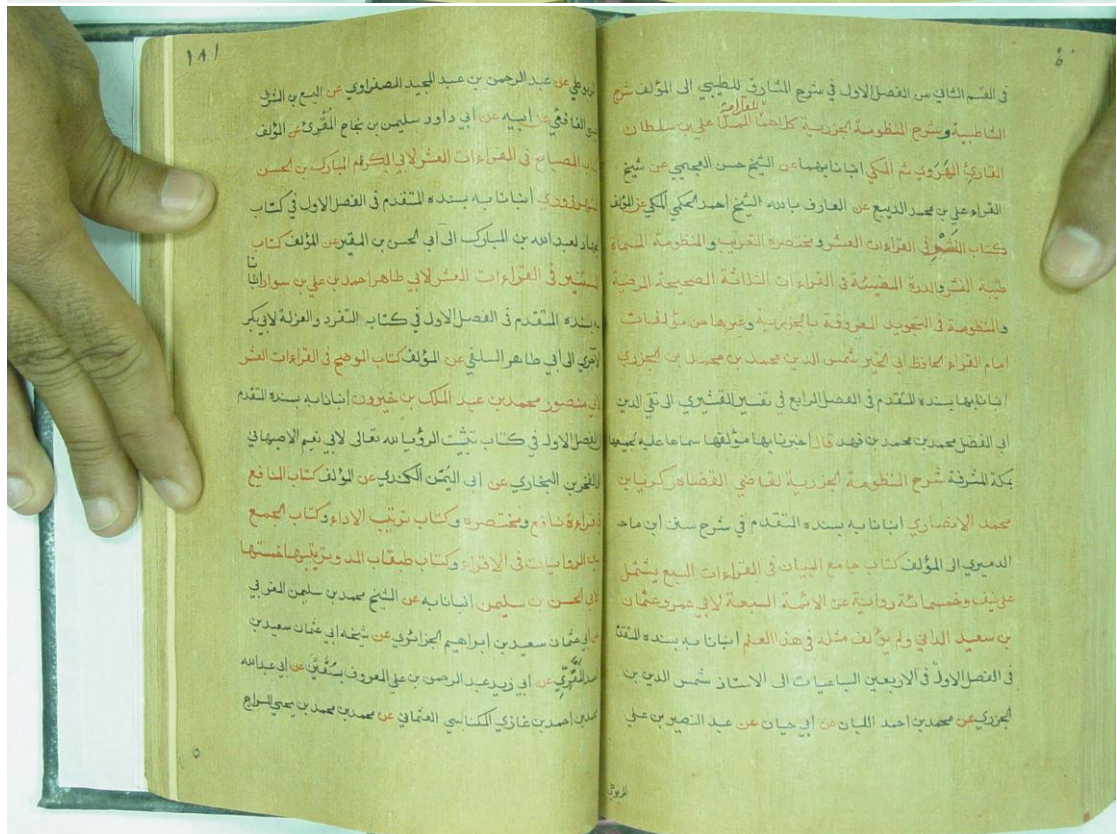 في القسم الثاني من الفصل الاول في شرح المشارق للطيبي الى المؤلف شرح
الشاطبية وشرح المنظومة الجزرية كلاهما للعلامة المنلا علي بن سلطان
القارئ الهروي ثم المكي انبانا بهما عن الشيخ حسن العجيمي عن شيخ
القراء علي بن محمد الديبع عن العارف بالله الشيخ احمد الحكمي المكي عن المؤلف
كتاب النشر في القراءات العشر ومختصره التقريب والمنظومة المسماة
طيبة النشر والدرة المضيئة في القراءات الثلاثة الصحيحة المرضية
والمنظومة في التجويد المعروفة بالجزرية وغيرها من مؤلفات
امام القراء الحافظ ابي الخير شمس الدين محمد بن محمد بن الجزري
انبانا بها بسنده المتقدم في الفصل الرابع في تفسير القشيري الى تقي الدين
ابي الفضل محمد بن محمد بن فهد قال اخبرنا بها مؤلفها سماعا عليه لجميعها
بمكة المشرفة شرح المنظومة الجزرية لقاضي القضاة زكريا بن
محمد الانصاري انبانا به بسنده المتقدم في شرح سنن ابن ماجه
الدميري الى المؤلف كتاب جامع البيان في القراءات السبع يشتمل
على نيف وخمسمائة رواية عن الائمة السبعة لابي عمرو عثمان
بن سعيد الداني ولم يؤلف مثله في هذا العلم انبانا به بسنده المتقدم
في الفصل الاول في الاربعين التساعيات الى الاستاذ شمس الدين بن
الجزري عن محمد بن احمد اللبان عن ابي حيان عن عبد النصير بن علي
المريوطي
١٨١
المريوطي عن عبد الرحمن بن عبد المجيد الصفراوي عن اليسع بن
الغافقي عن ابيه عن ابي داود سليمن بن نجاح المقرئ عن المؤلف
كتاب المصباح في القراءات العشر لابي الكرم المبارك بن الحسن
الشهرزوري انبانا به بسنده المتقدم في الفصل الاول في كتاب
الجهاد لعبد الله بن المبارك الى ابي الحسن بن المقير عن المؤلف كتاب
المستنير في القراءات العشر لابي طاهر احمد بن علي بن سوار انبانا
به بسنده المتقدم في الفصل الاول في كتاب التفرد والعزلة لابي بكر
الآجري الى ابي طاهر السلفي عن المؤلف كتاب الموضح في القراءات العشر
لابي منصور محمد بن عبد الملك بن خيرون انبانا به بسنده المتقدم
الفصل الاول في كتاب تثبيت الرؤيا لله تعالى لابي نعيم الاصبهاني
الى الفخر بن البخاري عن ابي اليمن الكندي عن المؤلف كتاب النافع
في قراءة نافع ومختصره وكتاب ترتيب الاداء وكتاب الجمع
بين الروايات في الاقراء وكتاب طبقات المد وترتيبها خمستها
لابي الحسن بن سليمن انبانا به عن الشيخ محمد بن سليمن المغربي
عن ابي عثمان سعيد بن ابراهيم الجزائري عن شيخه ابي عثمان سعيد بن
احمد المقري عن ابي زيد عبد الرحمن بن علي المعروف بسقين عن ابي عبد الله
محمد بن احمد بن غازي المكناسي العثماني عن محمد بن محمد بن يحيى السراج